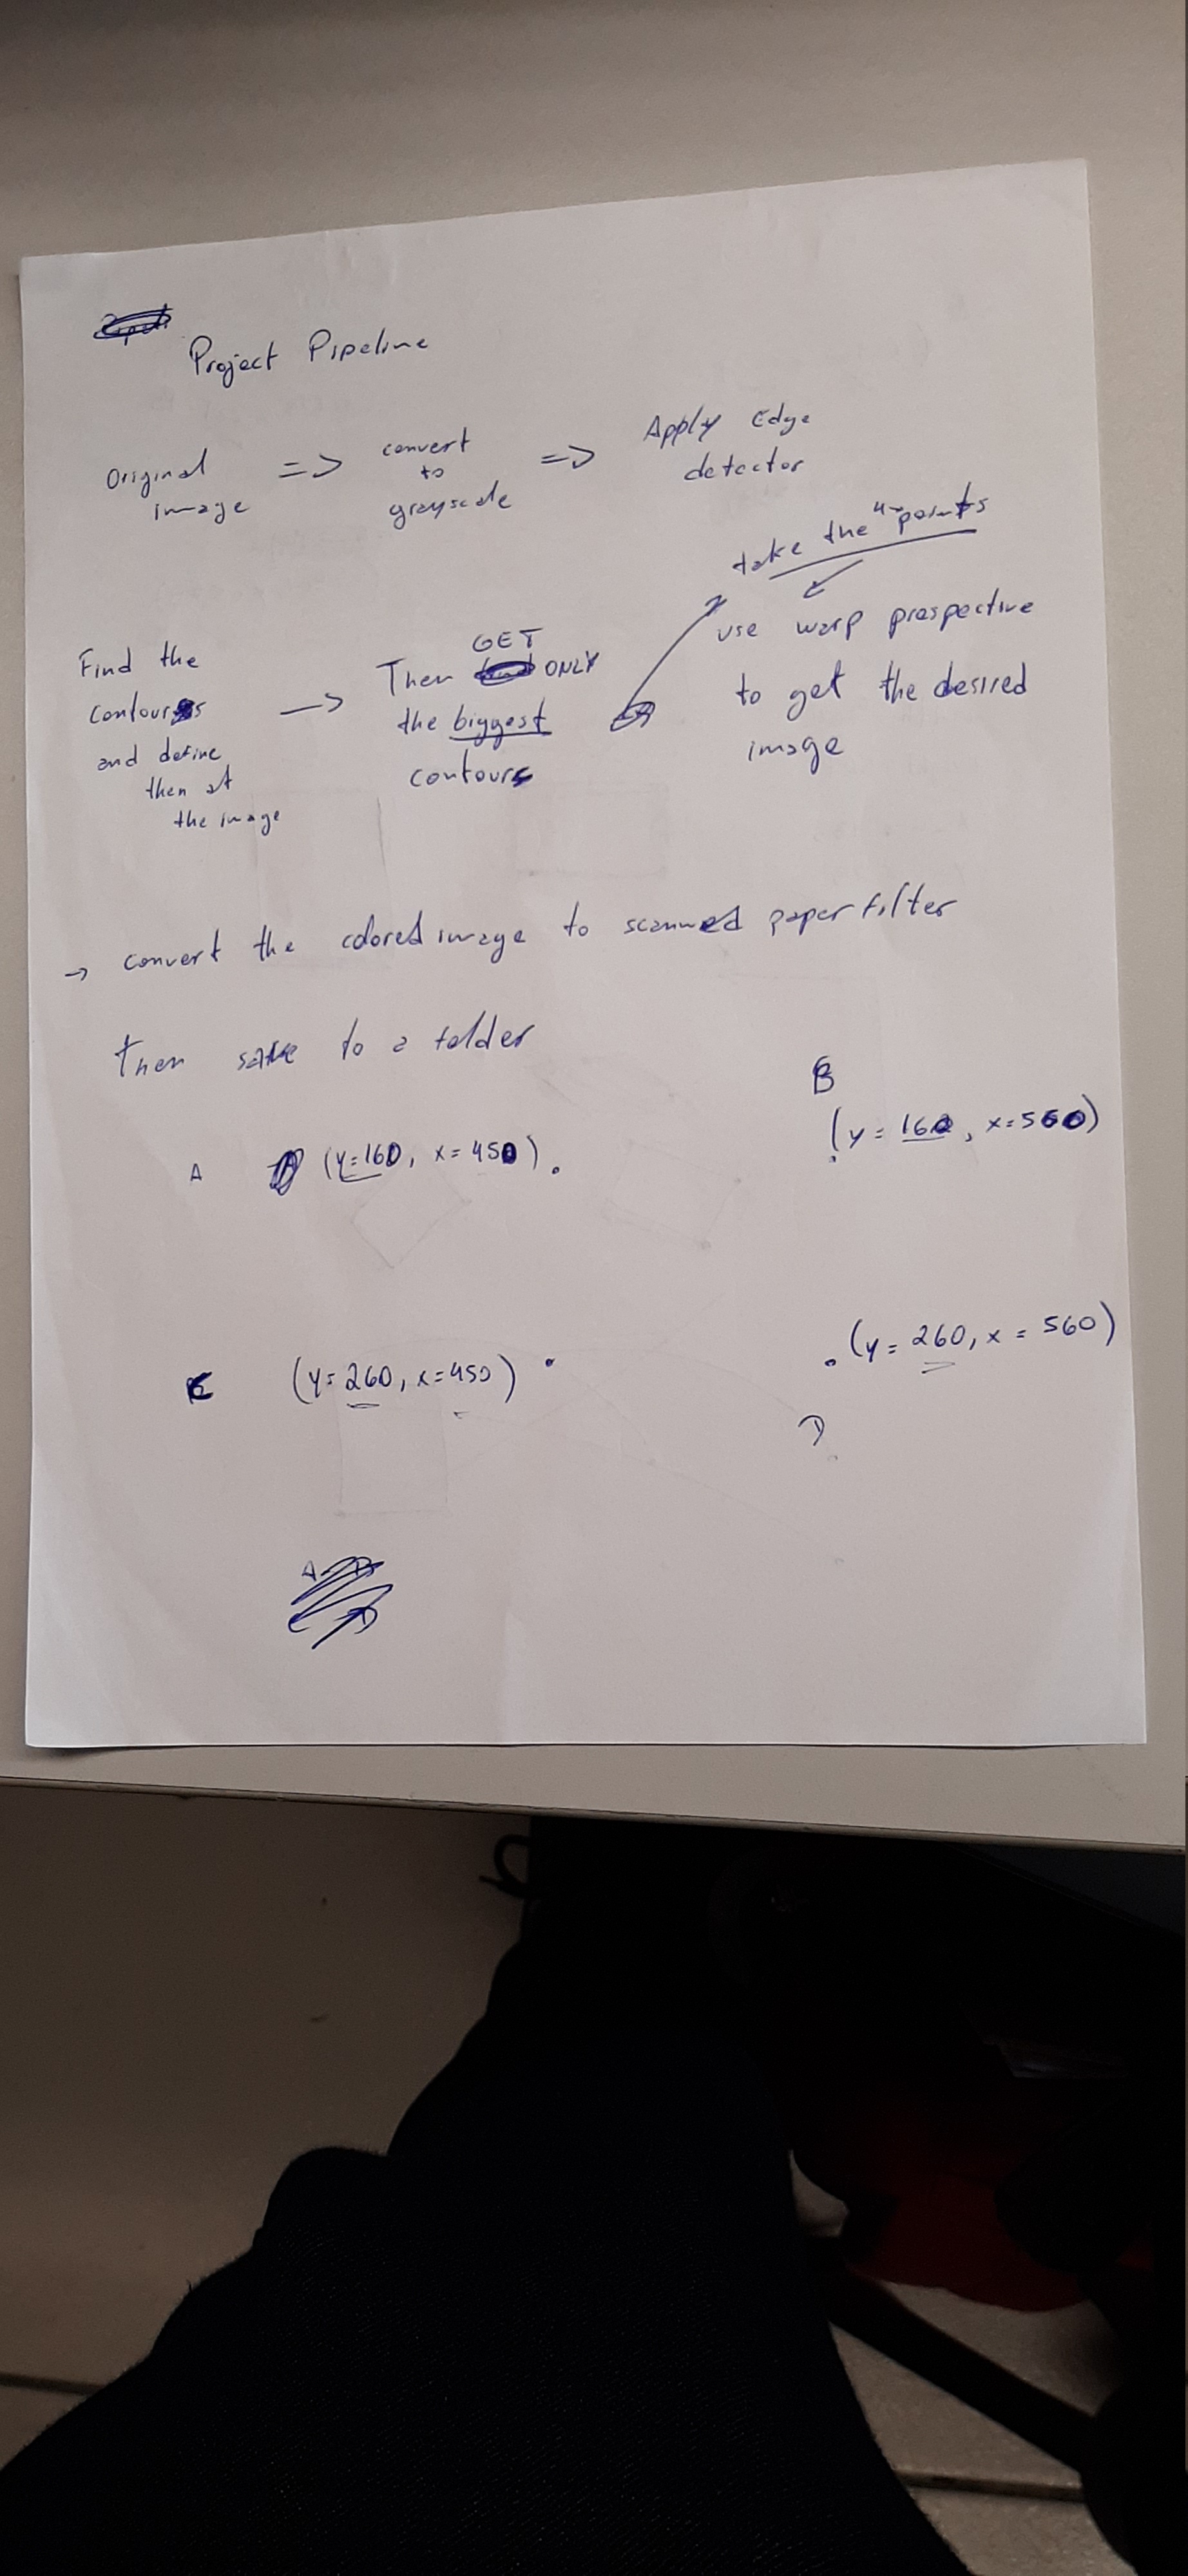 Project Pipeline
Original image => convert to grayscale => Apply Edge detector
take the 4 points
Find the contours and define then at the image -> Then GET ONLY the biggest contours
use warp prospective to get the desired image
-> convert the colored image to scanned paper filter
Then save to a folder
B
A (y=160, x=450) . (y=160, x=560)
C (y=260, x=450) . . (y=260, x=560)
D